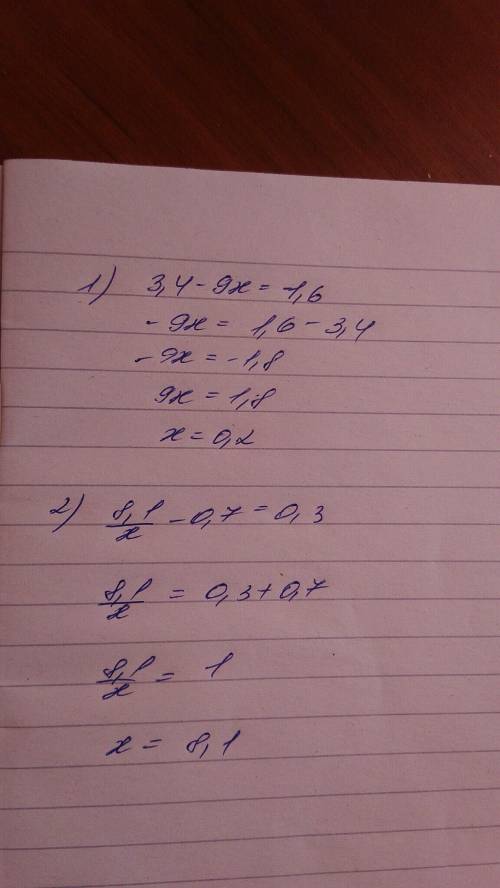 1) 3,4 - 9x = 1,6
- 9x = 1,6 - 3,4
- 9x = -1,8
9x = 1,8
x = 0,2
2) 8,1/x - 0,7 = 0,3
8,1/x = 0,3 + 0,7
8,1/x = 1
x = 8,1